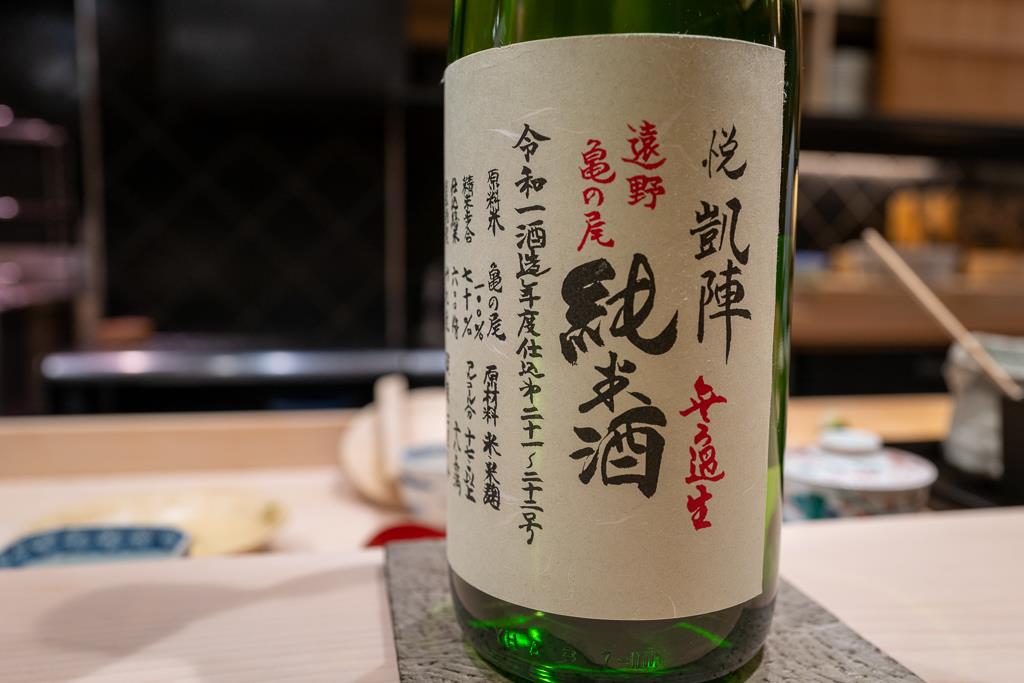 悦 凱陣 無ろ過生
遠野
亀の尾
純米酒
令和一酒造年度仕込第二十一〜二十二号
原料米 亀の尾 原材料 米 米麹
一〇〇%
精米歩合 七十% アルコール分 十七以上